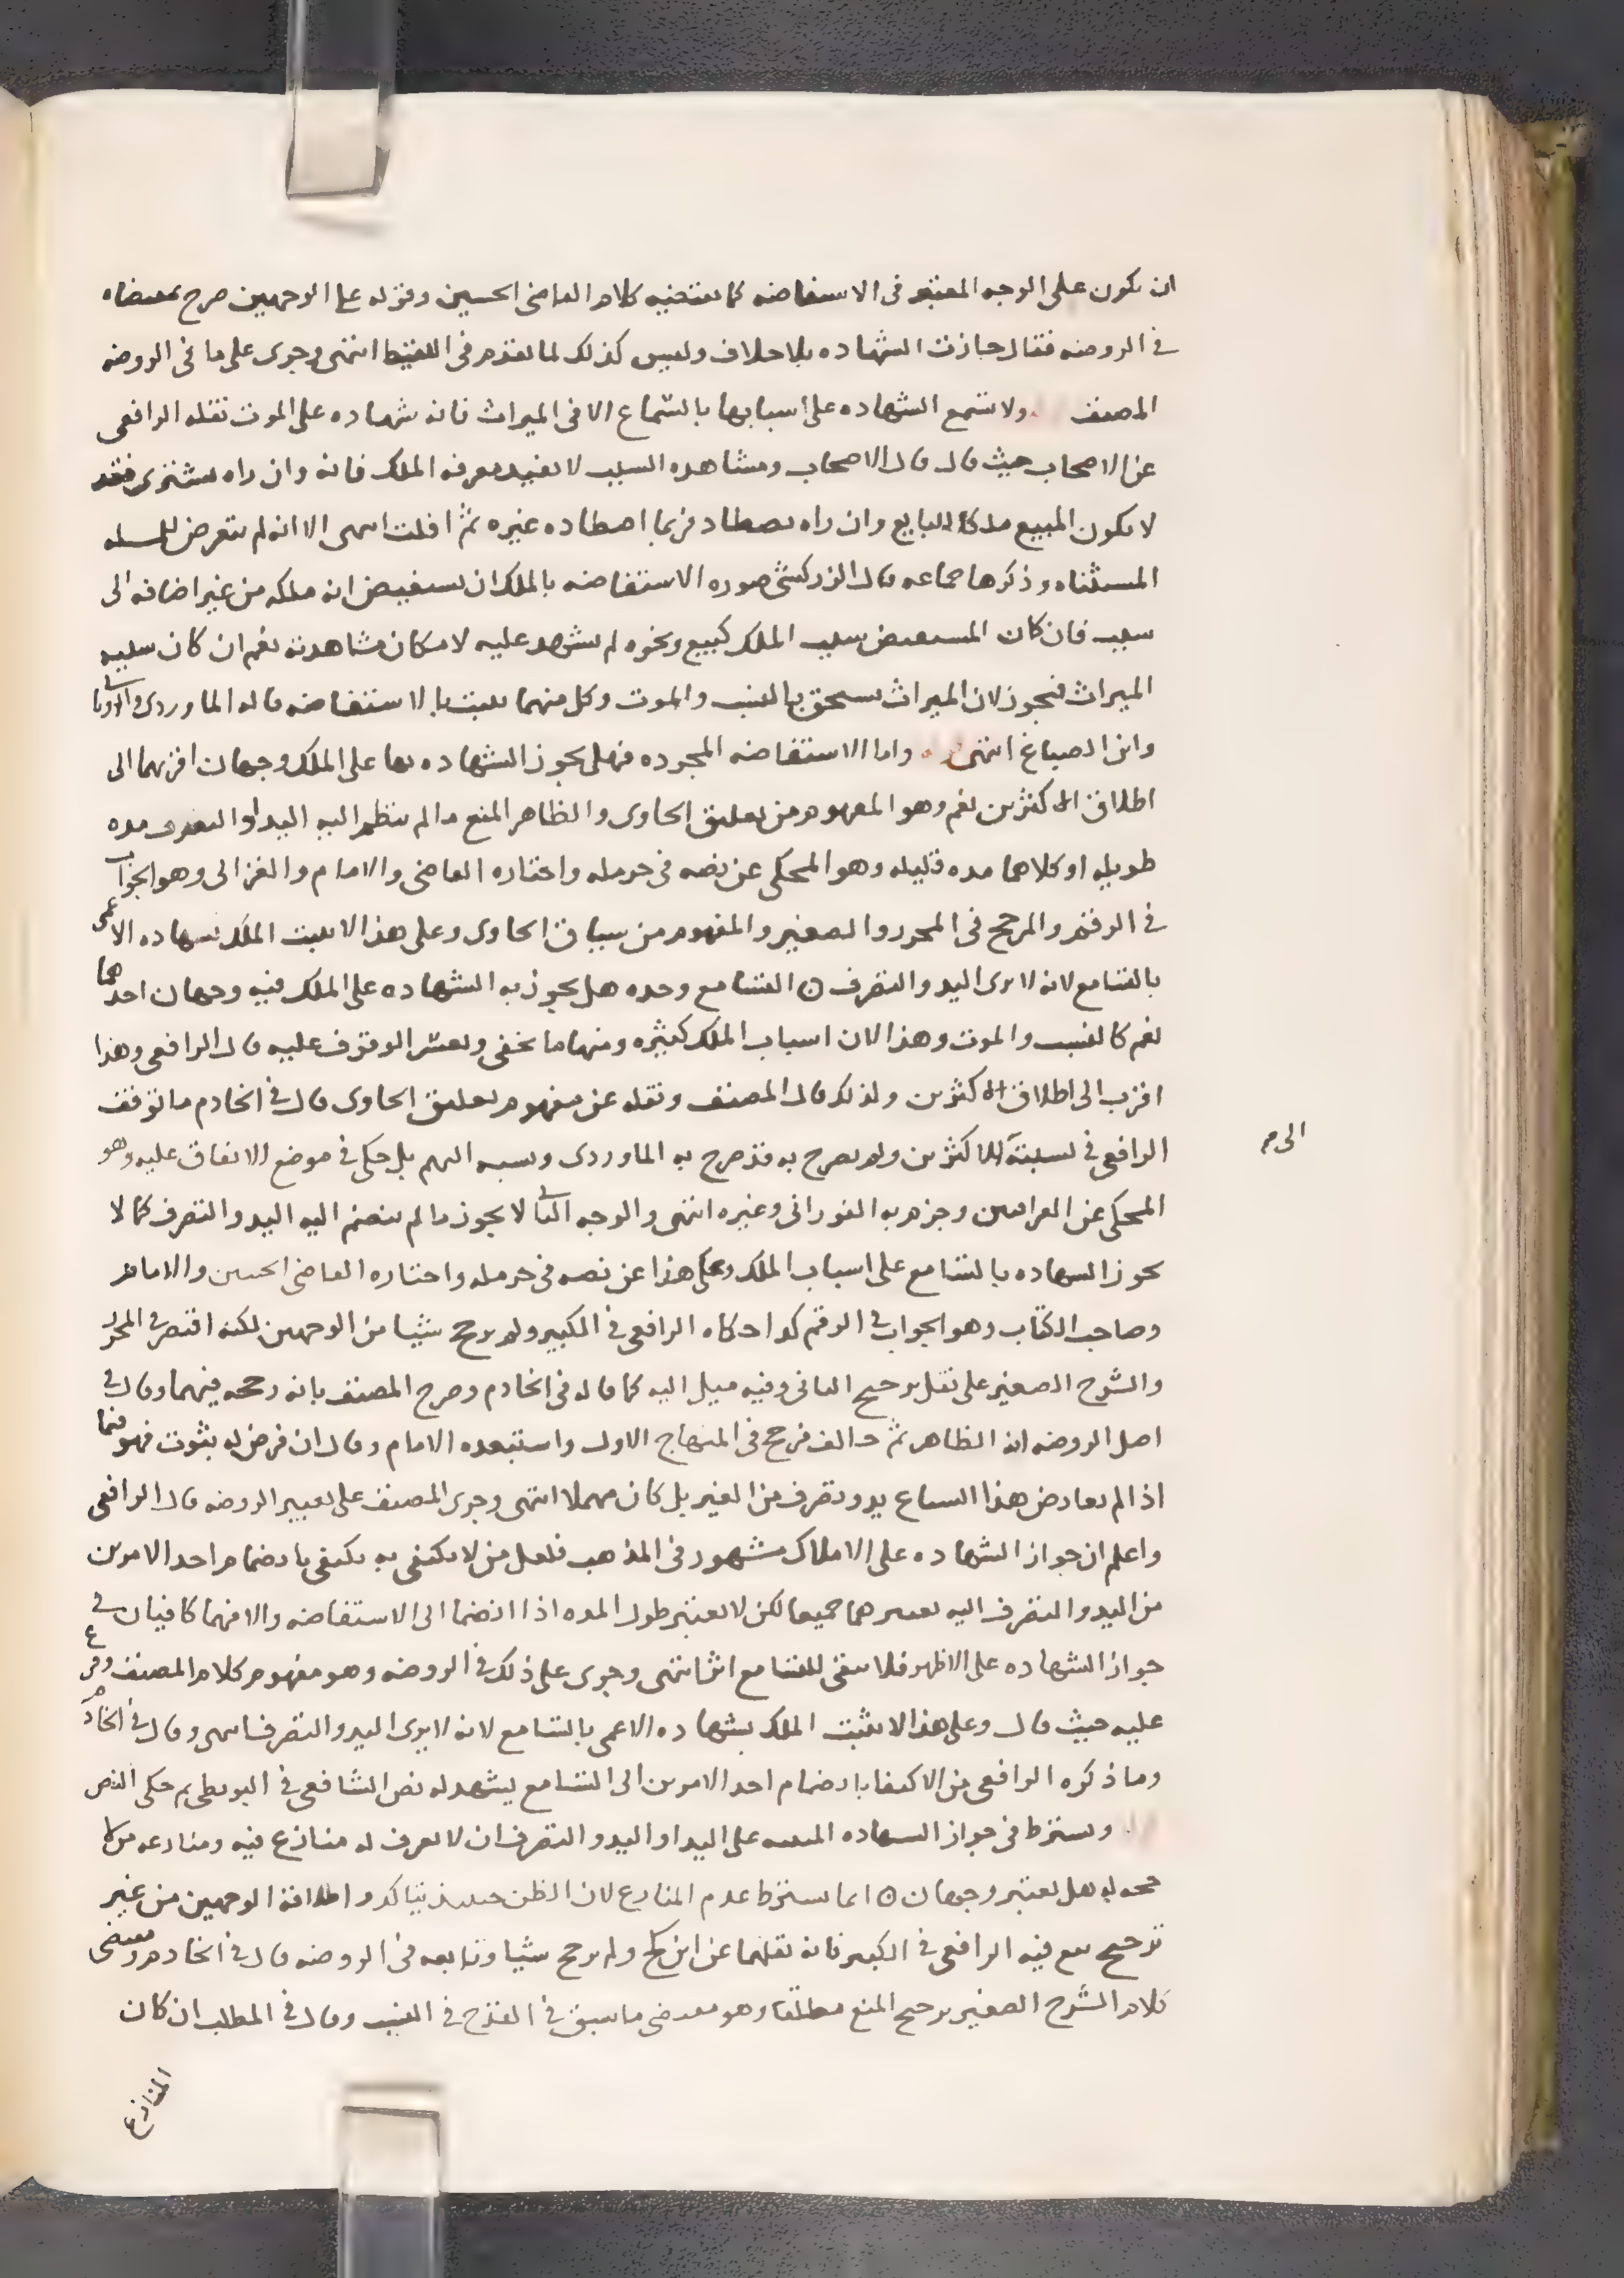 ان يكون على الوجه المعتبر فى الاستفاضه كما يقتضيه كلام القاضى الحسين وقوله على الوجهين صرح بمقتضاه
فى الروضه فقال جازت الشهاده بلا خلاف وليس كذلك لما تقدم فى اللقيط انتهى وجرى على ما فى الروضه
المصنف ولا تسمع الشهاده على اسبابها بالسماع الا فى الميراث فانه شهاده على الموت نقله الرافعى
عن الاصحاب حيث قال قال الاصحاب ومشاهده السبب لا تفيد معرفه الملك فانه وان راه يشترى فقد
لا يكون المبيع ملكا للبايع وان راه يصطاد فربما اصطاده غيره ثم افلت انتهى الا انه لم يتعرض للمسله
المستثناه وذكرها جماعه قال الزركشى صوره الاستفاضه بالملك ان يستفيض انه ملكه من غير اضافه الى
سبب فان كان المستفيض سبب الملك كبيع ونحوه لم يشهد عليه لامكان مشاهدته نعم ان كان سببه
الميراث فيجوز لان الميراث يستحق بالنسب والموت وكل منهما يثبت بالاستفاضه قاله الماوردى والرويانى
وابن الصباغ انتهى واما الاستفاضه المجرده فهل يجوز الشهاده بها على الملك وجهان اقربهما الى
اطلاق الاكثرين نعم وهو المفهوم من تعليق الحاوى والظاهر المنع ما لم ينظم اليه اليد او التصرف مده
طويله او كلاهما مده قليله وهو المحكى عن نصه فى حرمله واختاره القاضى والامام والغزالى وهو الجواب
فى الرقم والمرجح فى المحرر والصغير والمفهوم من سياق الحاوى وعلى هذا لا يثبت الملك بشهاده الاعمى
بالتسامع لانه لا يرى اليد والتصرف ه التسامع وحده هل يجوز به الشهاده على الملك فيه وجهان احدهما
نعم كالنسب والموت وهذا لان اسباب الملك كثيره ومنها ما يخفى ويعسر الوقوف عليه قال الرافعى وهذا
اقرب الى اطلاق الاكثرين ولذلك قال المصنف ونقله عن مفهوم تعليق الحاوى قال فى الخادم ما توقف
الرافعى فى نسبته للاكثرين ولم يصرح به قد صرح به الماوردى ونسبه اليهم بل حكى فى موضع الاتفاق عليه وهو
الى م
المحكى عن العراقيين وجزم به الفورانى وغيره انتهى والوجه الثانى لا يجوز ما لم ينضم اليه اليد والتصرف كما لا
يجوز الشهاده بالتسامع على اسباب الملك وحكى هذا عن نصه فى حرمله واختاره القاضى الحسين والامام
وصاحب الكتاب وهو الجواب فى الرقم كذا حكاه الرافعى فى الكبير ولم يرجح شيا من الوجهين لكنه اقتصر فى المحرر
والشرح الصغير على نقل ترجيح الثانى وفيه ميل اليه كما قاله فى الخادم وصرح المصنف بانه رجحه فيهما وقال فى
اصل الروضه انه الظاهر ثم خالف فرجح فى المنهاج الاول واستبعده الامام وقال ان فرض له ثبوت فهو فيما
اذا لم يعارض هذا السماع يد وتصرف من الغير بل كان مهملا انتهى وجرى المصنف على تعبير الروضه قال الرافعى
واعلم ان جواز الشهاده على الاملاك مشهور فى المذهب فلعل من لا يكتفى به يكتفى بانضمام احد الامرين
من اليد والتصرف اليه يعتبرهما جميعا لكن لا يعتبر طول المده اذا انضما الى الاستفاضه والا فهما كافيان فى
جواز الشهاده على الاظهر فلا يبقى للتسامع اثر انتهى وجرى على ذلك فى الروضه وهو مفهوم كلام المصنف وفرع
عليه حيث قال وعلى هذا لا يثبت الملك بشهاده الاعمى بالتسامع لانه لا يرى اليد والتصرف انتهى وقال فى الخادم
وما ذكره الرافعى من الاكتفا بانضمام احد الامرين الى التسامع يشهد له نص الشافعى فى البويطى ثم حكى النص
ويشترط فى جواز الشهاده المبنيه على اليد او اليد والتصرف ان لا يعرف له منازع فيه ومنازعه من لا
حجه له هل يعتبر وجهان ه انما يشترط عدم المنازع لان الظن حينيذ يتاكد واطلاقه الوجهين من غير
ترجيح تبع فيه الرافعى فى الكبير فانه نقلهما عن ابن كج ولم يرجح شيا وتابعه فى الروضه قال فى الخادم ومقتضى
كلام الشرح الصغير ترجيح المنع مطلقا وهو مقتضى ما سبق فى القدح فى النسب وقال فى المطلب ان كان
المنازع